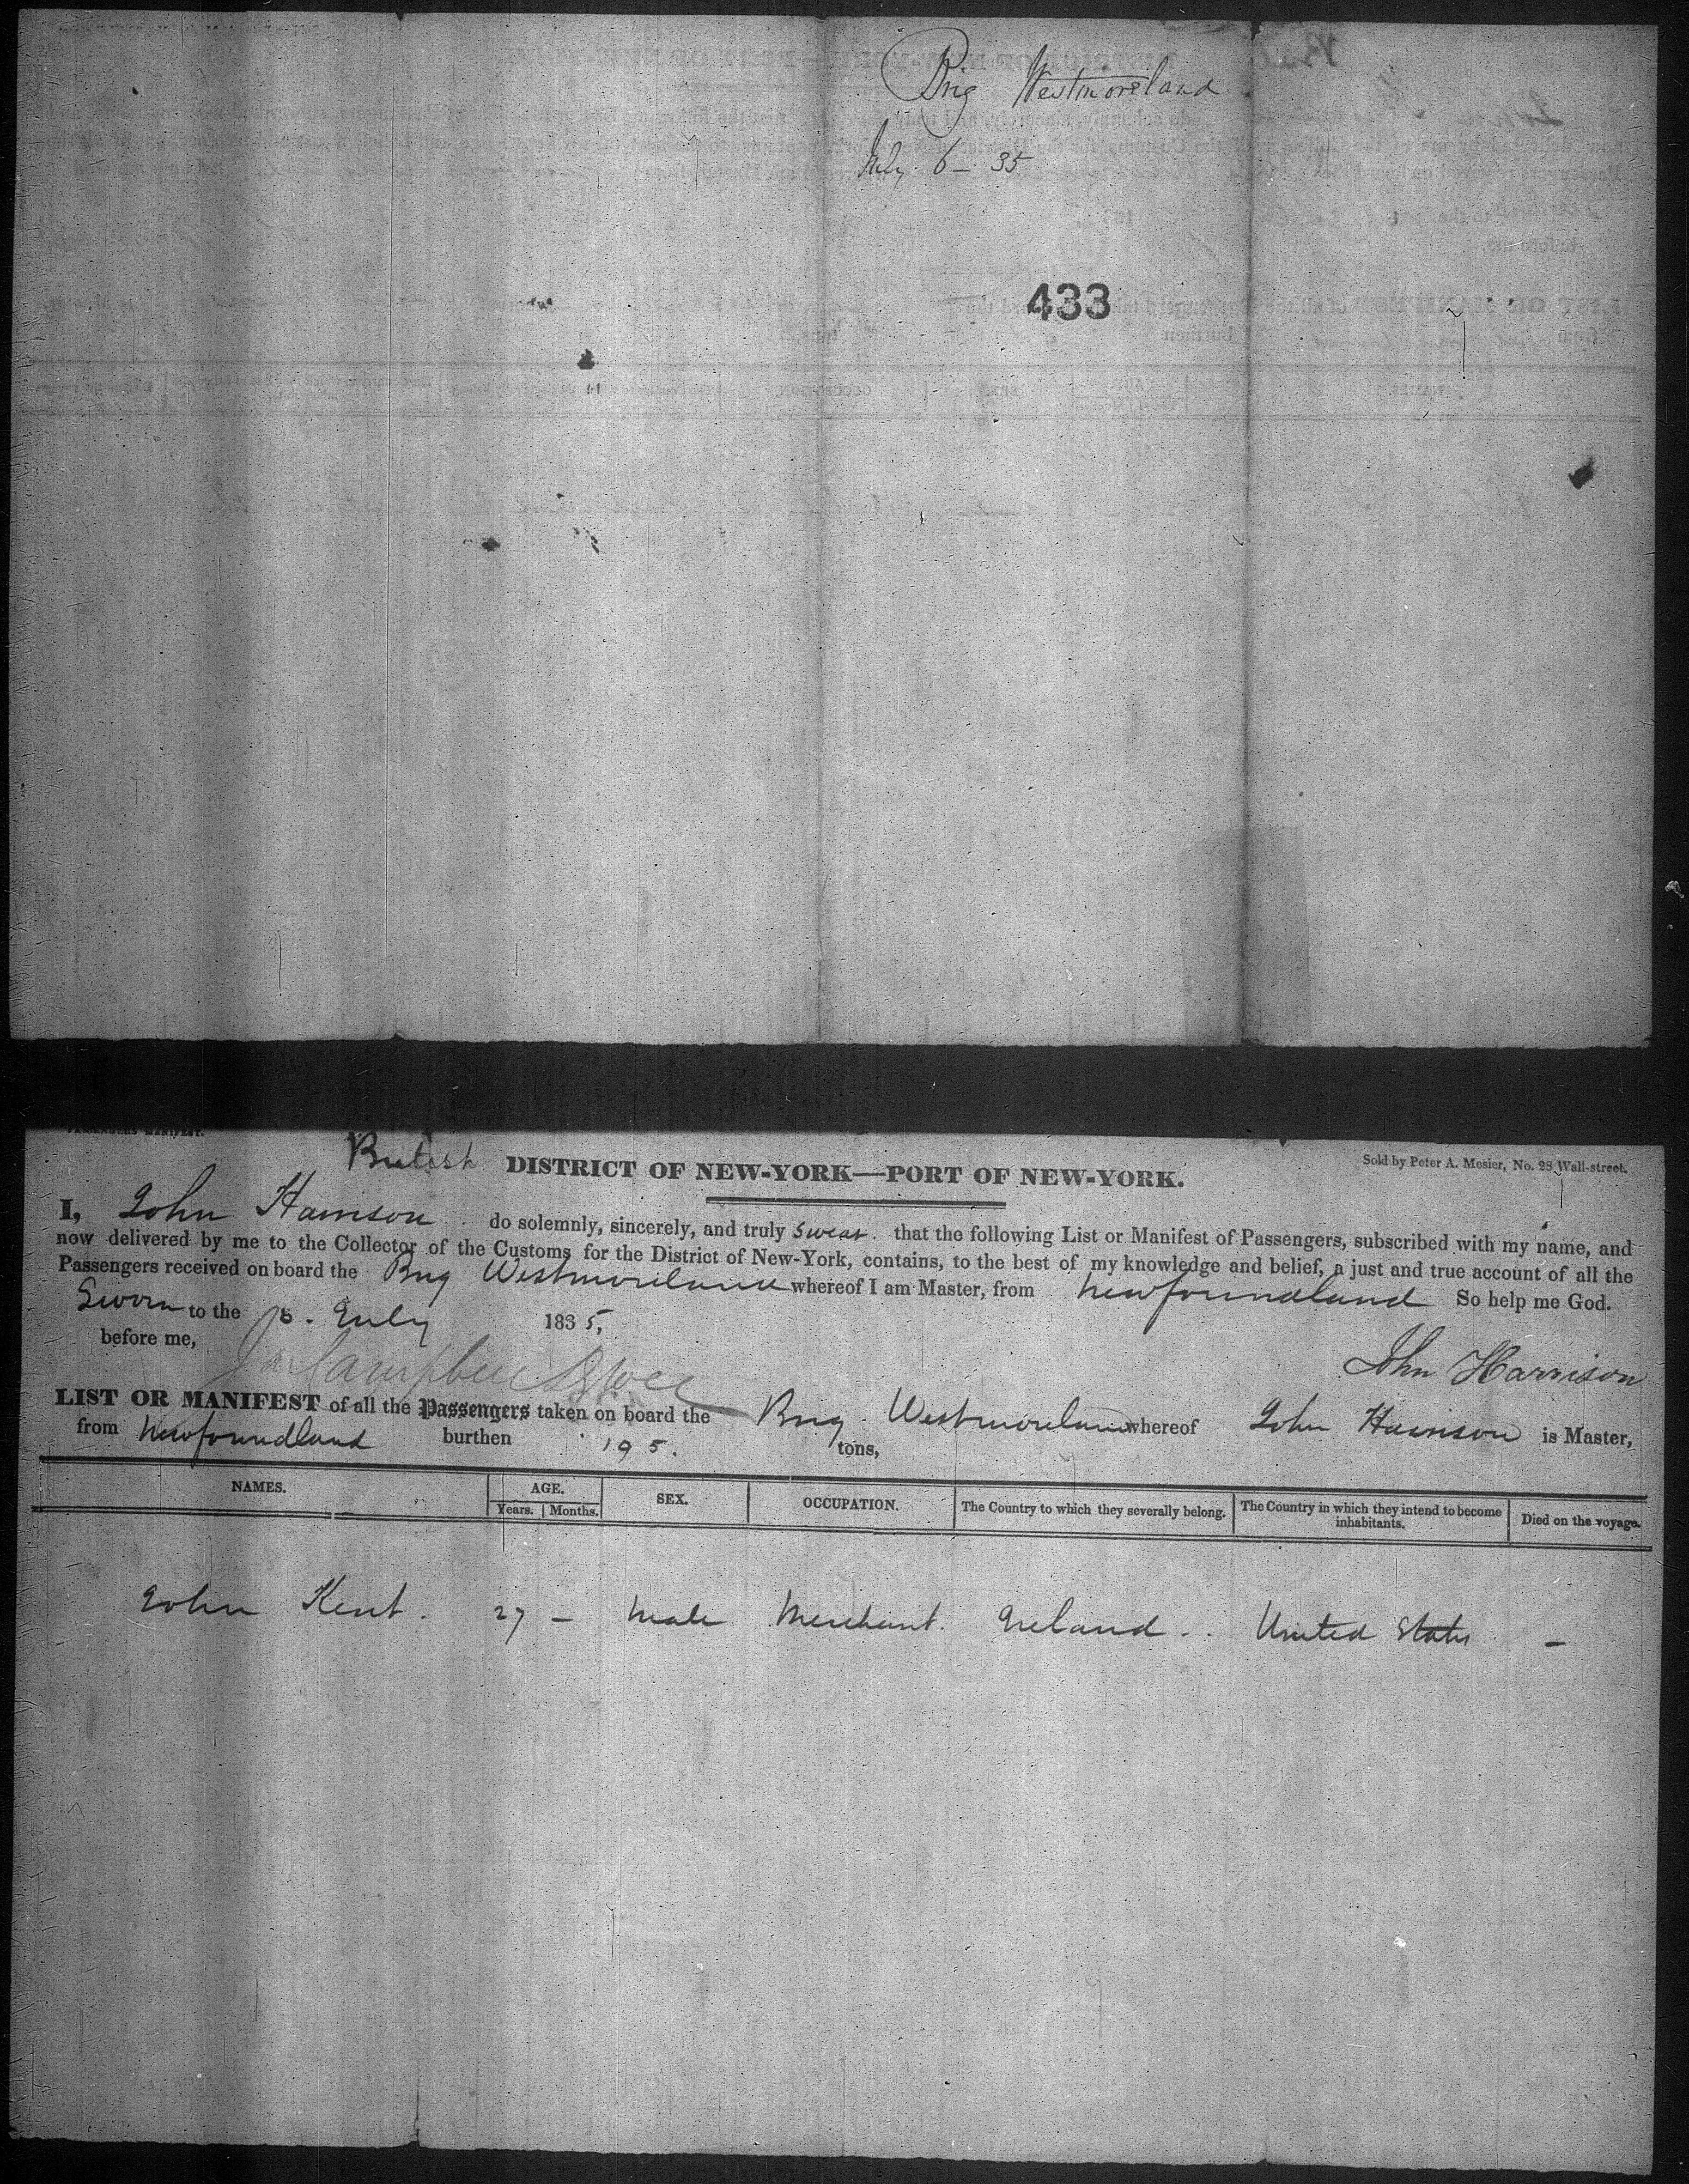 Brig Westmoreland
July 6 - 35
433
PASSENGERS MANIFEST.
British DISTRICT OF NEW-YORK—PORT OF NEW-YORK.
Sold by Peter A. Mesier, No. 28 Wall-street.
I, John Harrison do solemnly, sincerely, and truly swear that the following List or Manifest of Passengers, subscribed with my name, and
now delivered by me to the Collector of the Customs for the District of New-York, contains, to the best of my knowledge and belief, a just and true account of all the
Passengers received on board the Brig Westmoreland whereof I am Master, from Newfoundland So help me God.
Sworn to the 6. July 1835,
before me,
John Harrison
LIST OR MANIFEST of all the Passengers taken on board the Brig Westmoreland whereof John Harrison is Master,
from Newfoundland burthen 195. tons,
NAMES. AGE. SEX. OCCUPATION. The Country to which they severally belong. The Country in which they intend to become inhabitants. Died on the voyage.
Years. Months.
John Kent. 27 - male Merchant. Ireland.. United States -